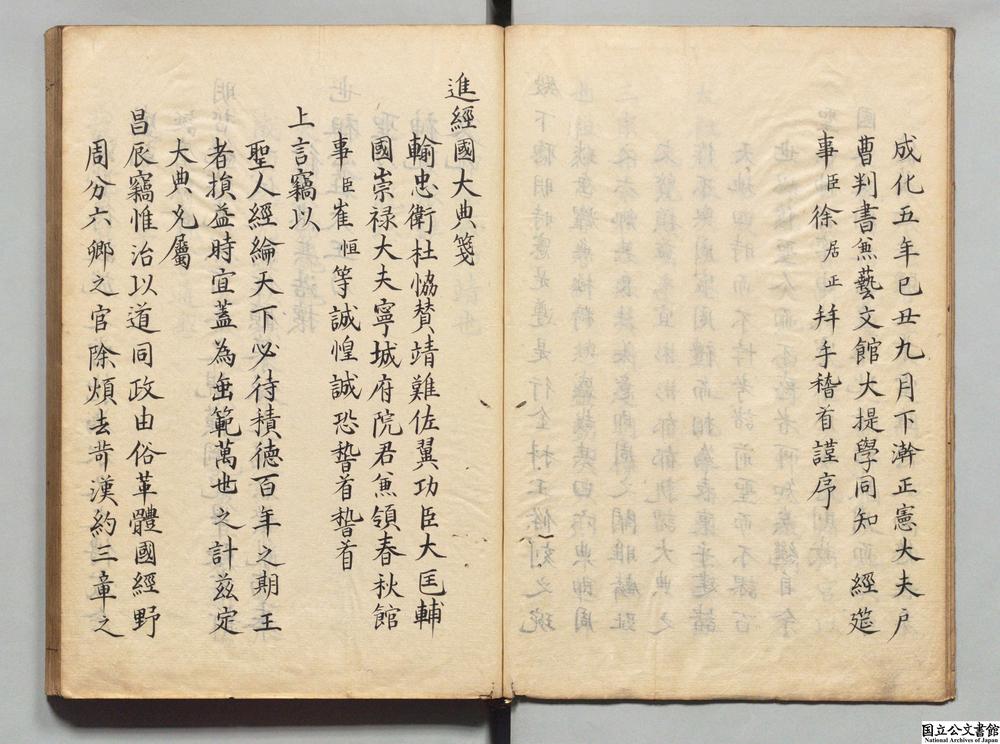 成化五年已丑九月下澣正憲大夫戶
曹判書兼藝文館大提學同知 經筵
事臣徐居正拜手稽首謹序
進經國大典箋
輸忠衛社恊贊靖難佐翼功臣大匡輔
國崇禄大夫寧城府院君兼領春秋館
事臣崔恒等誠惶誠恐
上言竊以
聖人經綸天下必待積德百年之期王
者損益時宜蓋為垂範萬世之計兹定
大典允屬
昌辰竊惟治以道同政由俗革體國經野
周分六卿之官除煩去苛漢約三章之
国立公文書館
National Archives of Japan